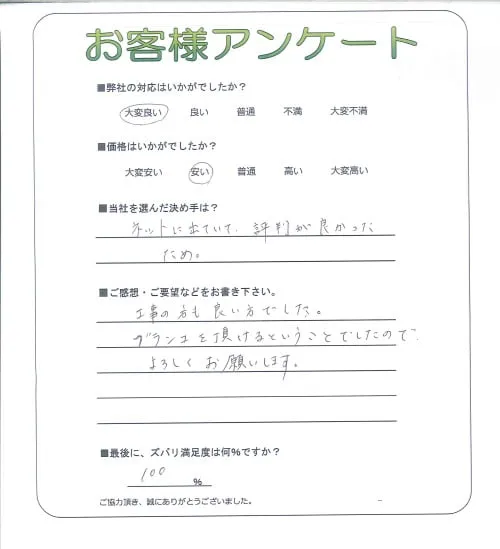 お客様アンケート
■弊社の対応はいかがでしたか？
大変良い 良い 普通 不満 大変不満
■価格はいかがでしたか？
大変安い 安い 普通 高い 大変高い
■当社を選んだ決め手は？
ネットに出ていて、評判が良かった
ため。
■ご感想・ご要望などをお書き下さい。
工事の方も良い方でした。
を頂けるということでしたので
よろしくお願いします。
■最後に、ズバリ満足度は何%ですか？
100 %
ご協力頂き、誠にありがとうございました。